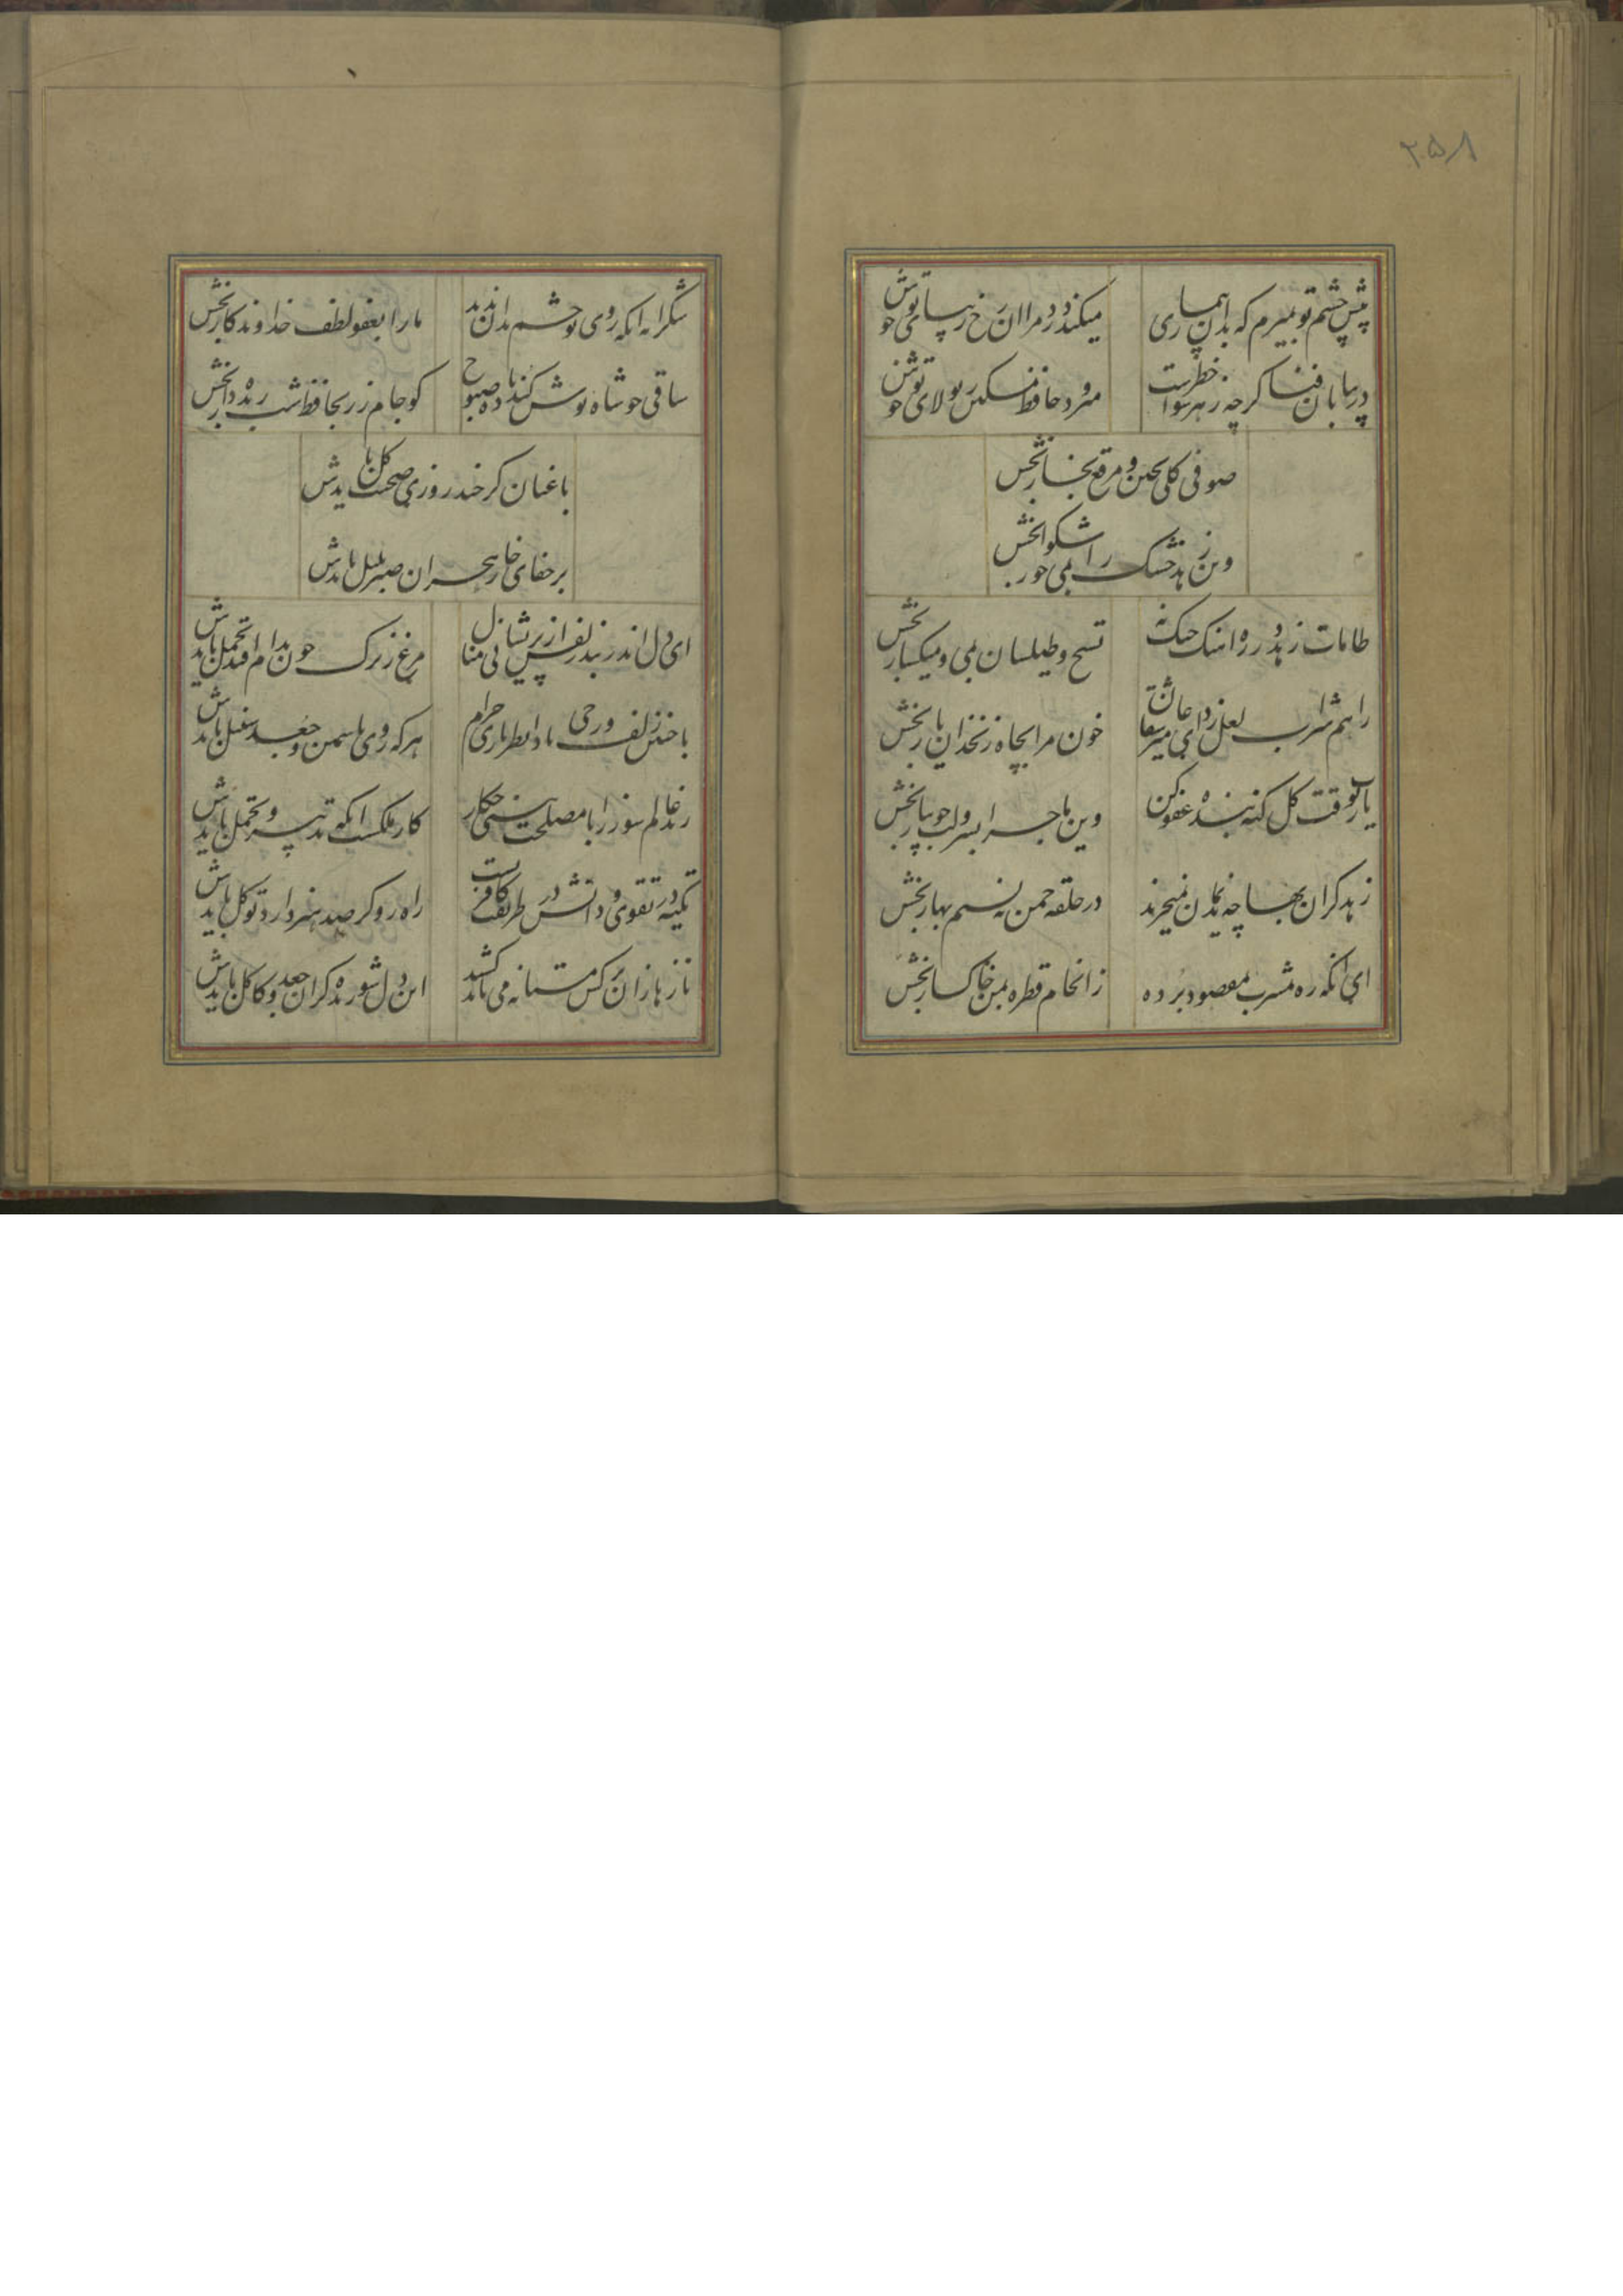 ۲۵۸
پیش چشم تو بمیرم که بدان بیماری
میکند درد مرا از رخ زیبای تو خوش
در بیابان فنا گرچه ز هر سو خطریست
میرود حافظ مسکین بتولای تو خوش
صوفی گلی بچین و مرقع بخار بخش
وین زهد خشک را بمی خوشگوار بخش
طامات زهد در ره آهنگ چنگ نه
تسبیح و طیلسان بمی و میکسار بخش
راهم شراب لعل زد ای میر عاشقان
خون مرا بچاه زنخدان یار بخش
یارب بوقت گل گنه بنده عفو کن
وین ماجرا بسرو لب جویبار بخش
زهد گران بها چه ندیمان نمیخرند
در حلقه چمن به نسیم بهار بخش
ای آنکه ره بمشرب مقصود برده
زانجام قطره بمن خاکسار بخش
شکرانه آنکه روی تو چشم بدان ندید
ما را بعفو لطف خداوندکار بخش
ساقی چو شاه نوش کند باده صبوح
گو جام زر بحافظ شب زنده دار بخش
باغبان گر چند روزی صحبت گل بایدش
بر جفای خار هجران صبر بلبل بایدش
ای دل اندر بند زلفش از پریشانی منال
مرغ زیرک چون بدام افتد تحمل بایدش
با چنین زلف و رخی بادا نظربازی حرام
هرکه روی یاسمن و جعد سنبل بایدش
رند عالم سوز را با مصلحت بینی چکار
کار ملکست آنکه تدبیر و تحمل بایدش
تکیه در تقوی و دانش در طریقت کافریست
راه رو گر صد هنر دارد توکل بایدش
نازها زان نرگس مستانه می باید کشید
این دل شوریده گر آن جعد و کاکل بایدش